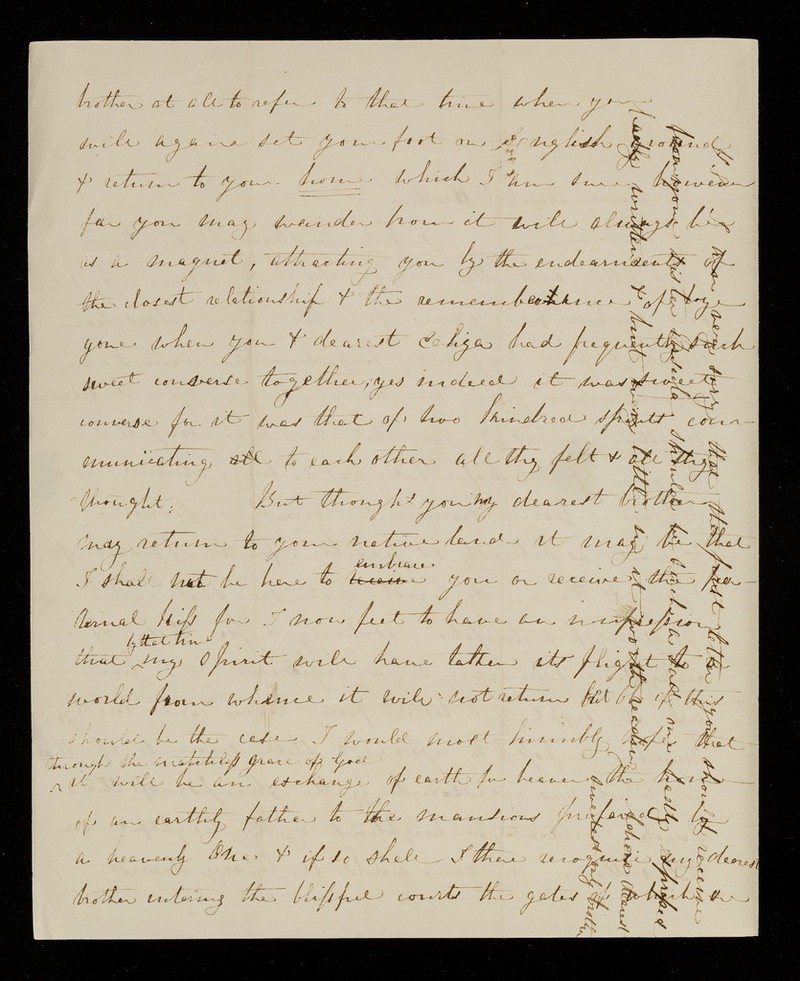 brother at all to refer to that time when you
will again set your foot on English ground
& return to your home which I am sure however
far you may wander from it will always be
as a magnet, attracting you by the endearments of
the closest relationship & the remembrance of days
gone when you & dearest Eliza had frequently such
sweet converse together, yes indeed it was sweet
converse for it was that of two kindred spirits com-
municating all to each other all they felt & all they
thought. But though you my dearest brother
may return to your native land it may be that
I shall not be here to embrace you or receive the fra-
ternal kiss for I now feel to have an impression
that by that time my spirit will have taken its flight to
world from whence it will not return but O if this
should be the case I would most humbly hope that
through the matchless grace of God
it will be an exchange of earth for heaven the home
of an earthly father to the mansions prepared by
a heavenly One & if so shall I there recognize my dearest
brother entering the blissful courts the gates of which are
I am very sorry that the first letter you should receive
from your sister should be such a sad one badly expressed
badly written & but very little in it worth reading
adieu dearest
sweetest my brother